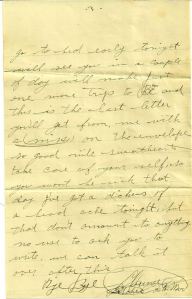 go to bed early tonight
will see you in a couple
of day will make just
one more trips to
this is the last letter
you'll get from me with
on the envelope
so good nite sweetheart
take care of your self so
you wont be sick that
day I've got a dickens of
a head ache tonight, but
that don't amount to anything
no use to ask you to
write, we can talk it
over after this.
Bye Bye